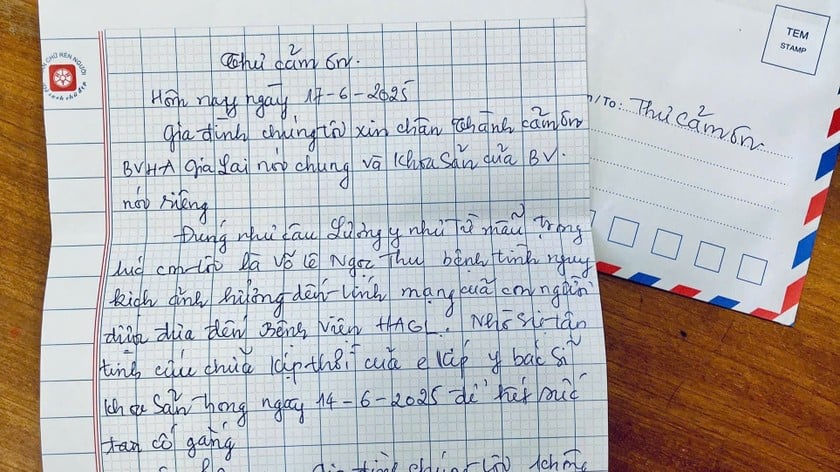 Thư cảm ơn.
Hôm nay ngày 17-6-2025
Gia đình chúng tôi xin chân thành cảm ơn
BVHA Gia Lai nói chung và khoa Sản của BV.
nói riêng
Đúng như câu Lương y như Từ mẫu trong
lúc con tôi là Võ Lê Ngọc Thu bệnh tình nguy
kịch ảnh hưởng đến tính mạng của con người
được đưa đến Bệnh Viện HAGL. Nhờ sự tận
tình cứu chữa kịp thời của e kíp y bác sĩ
khoa Sản trong ngày 14-6-2025 để hết sức
tan cố gắng
gia đình chúng tôi không
TEM
STAMP
/To: Thư cảm ơn